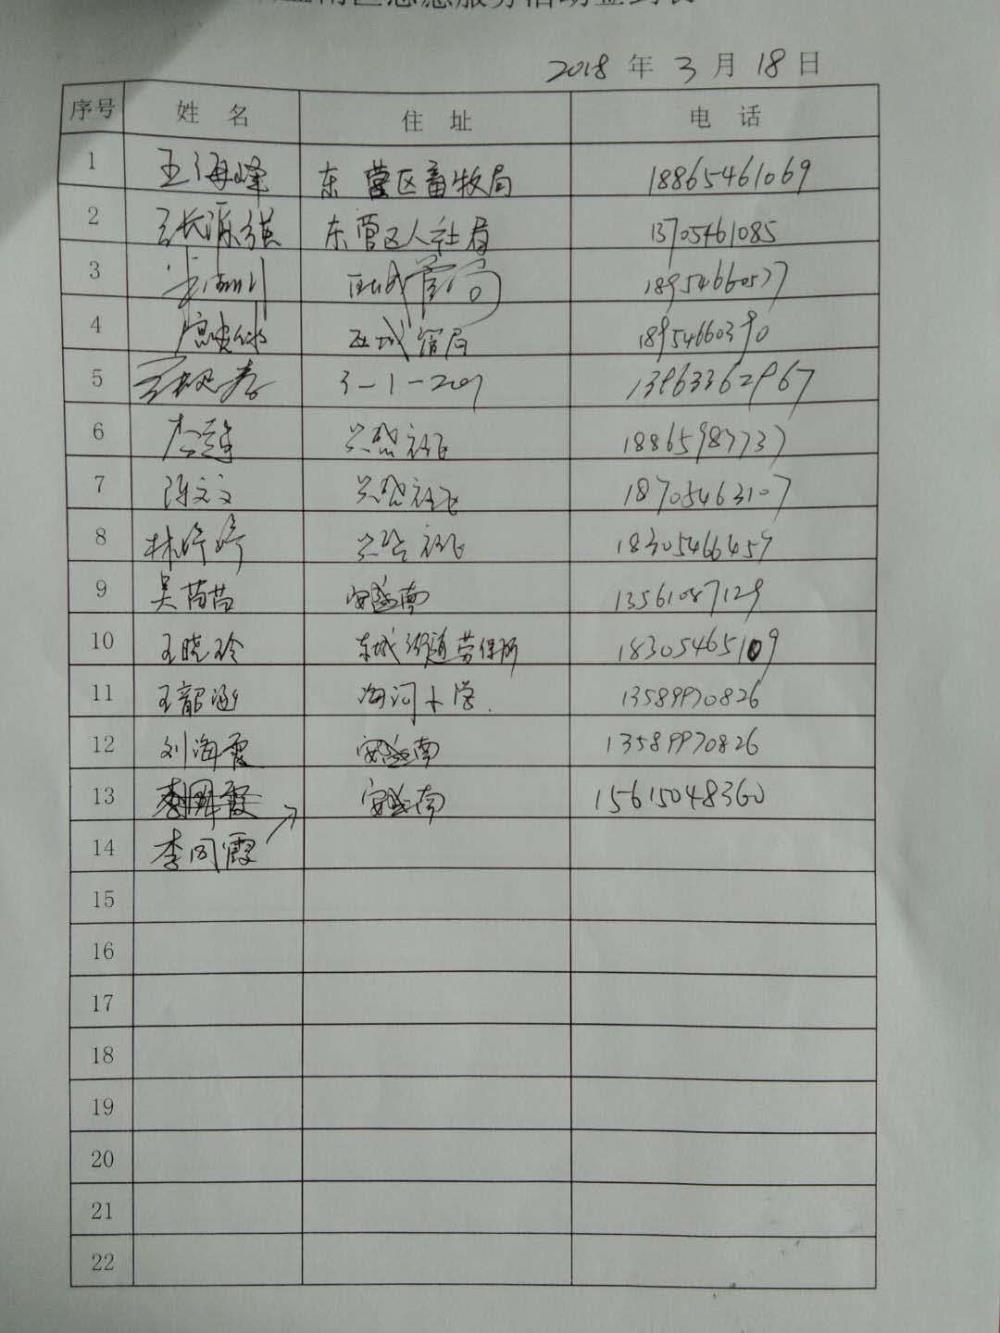 2018 年 3 月 18 日
序号 姓 名 住 址 电 话
1 王海峰 东营区畜牧局 18865461069
2 东营区人社局 13705461085
3 18954660577
4 18954660390
5 3-1-201 13963362967
6 18865983737
7 陈文文 18705463107
8 林婷婷 18305466459
9 吴苗苗 安盛南 13561087129
10 王晓玲 东城街道劳保所 18305465109
11 王韶涵 海河小学 13589970826
12 刘海霞 安盛南 13589970826
13 安盛南 15615048360
14 李同霞
15
16
17
18
19
20
21
22